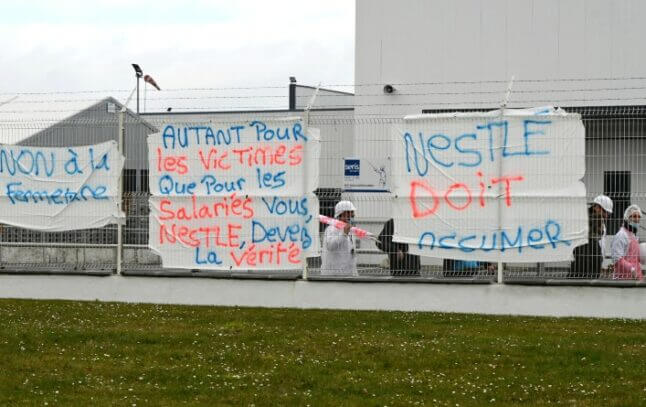 Non à la
fermeture
Autant Pour
les Victimes
Que Pour les
Salariés Vous,
NESTLE, Devez
La Vérité
NESTLE
Doit
Assumer
seris